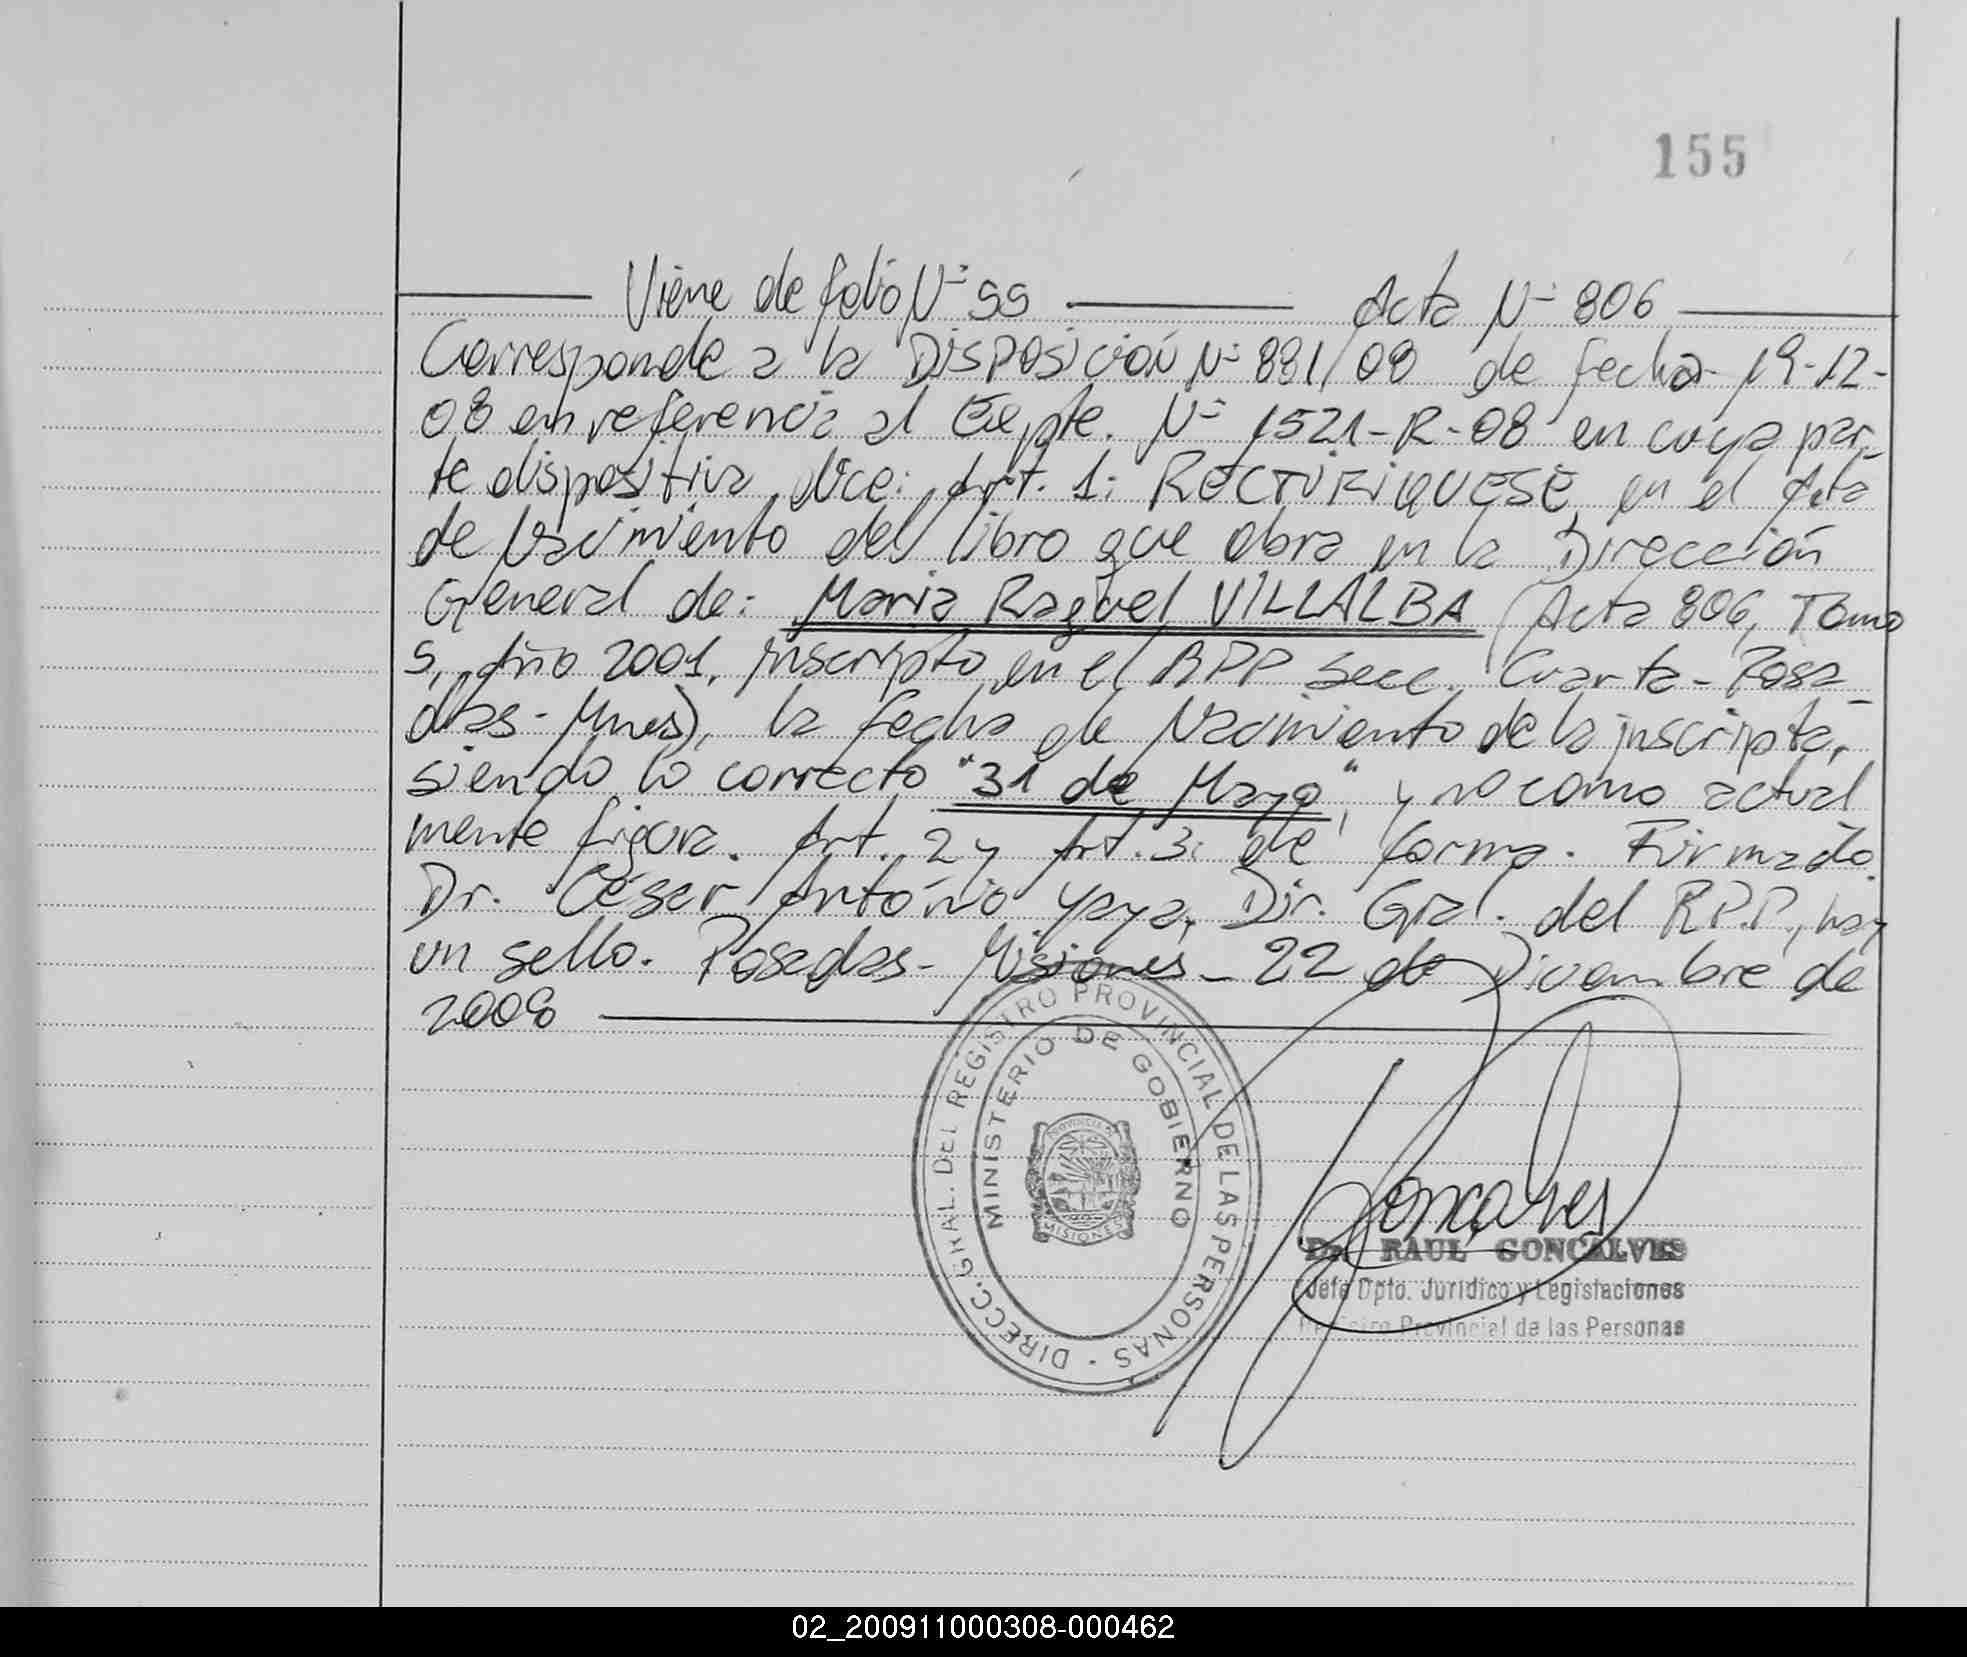 155
Viene de folio Nº 55 Acta Nº 806
Corresponde a la DISPOSICIÓN Nº 881/08 de fecha 19-12-
08 en referencia al Expte. Nº 1521-R-08 en cuya par_
te dispositiva dice: Art. 1: RECTIFIQUESE en el Acta
de Nacimiento del libro que obra en la Dirección
General de: Maria Raquel VILLALBA (Acta 806, Tomo
5, Año 2001, inscripto en el RPP Secc. Cuarta - Posa_
das - Mnes), la fecha de Nacimiento de la inscripta,
siendo lo correcto "31 de Mayo", y no como actual
mente figura. Art. 2 y Art. 3: de forma. Firmado
Dr. César António Yaya, Dir. Gral. del R.P.P., hay
un sello. Posadas - Misiones - 22 de Diciembre de
2008
DIRECC. GRAL. DEL REGISTRO PROVINCIAL DE LAS PERSONAS
MINISTERIO DE GOBIERNO
PROVINCIA DE
MISIONES
Goncalves
Dr. RAUL GONCALVES
Jefe Dpto. Jurídico y Legislaciones
Registro Provincial de las Personas
02_200911000308-000462